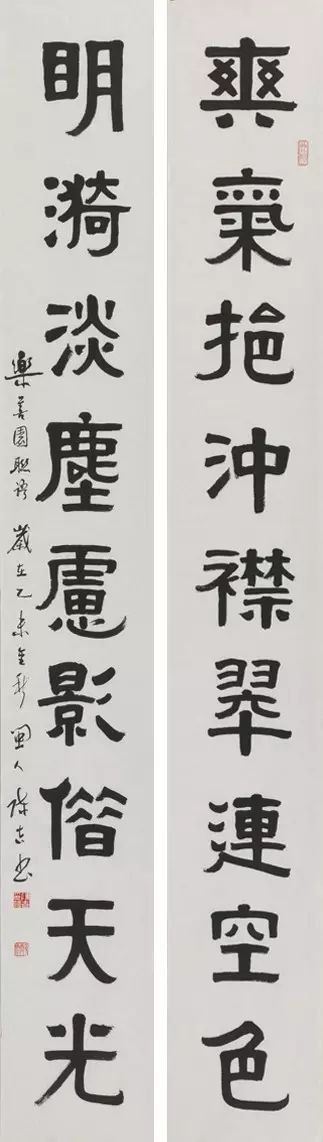 爽氣挹沖襟翠連空色
明漪淡塵慮影偕天光
樂善園聯語 歲在乙未金秋 閩人陳吉書